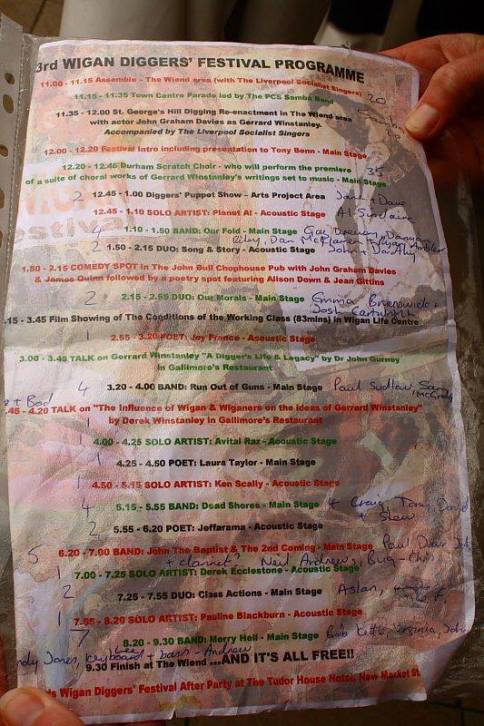 3rd WIGAN DIGGERS' FESTIVAL PROGRAMME
11:00 - 11.15 Assemble - The Wiend area (with The Liverpool Socialist Singers)
11.15 - 11.35 Town Centre Parade led by The PCS Samba Band 20
11.35 - 12.00 St. George's Hill Digging Re-enactment in The Wiend area
with actor John Graham Davies as Gerrard Winstanley.
Accompanied by The Liverpool Socialist Singers
12.00 - 12.20 Festival Intro including presentation to Tony Benn - Main Stage
12.20 - 12.45 Durham Scratch Choir - who will perform the premiere 35
of a suite of choral works of Gerrard Winstanley's writings set to music - Main Stage
2 12.45 - 1.00 Diggers' Puppet Show - Arts Project Area Dave
12.45 - 1.10 SOLO ARTIST: Planet Al - Acoustic Stage Al Sinclaire
4 1.10 - 1.50 BAND: Our Fold - Main Stage
2 1.50 - 2.15 DUO: Song & Story - Acoustic Stage
1.50 - 2.15 COMEDY SPOT in The John Bull Chophouse Pub with John Graham Davies
& James Quinn followed by a poetry spot featuring Alison Down & Jean Gittins
2 2.15 - 2.55 DUO: Our Morals - Main Stage Emma
Josh
.15 - 3.45 Film Showing of The Conditions of the Working Class (83mins) in Wigan Life Centre
1 2.55 - 3.20 POET: Joy France - Acoustic Stage
3.00 - 3.45 TALK on Gerrard Winstanley "A Digger's Life & Legacy" by Dr John Gurney
in Gallimore's Restaurant
4 3.20 - 4.00 BAND: Run Out of Guns - Main Stage Paul Sudlow, Sam
.45 - 4.20 TALK on "The Influence of Wigan & Wiganers on the Ideas of Gerrard Winstanley"
by Derek Winstanley in Gallimore's Restaurant
1 4.00 - 4.25 SOLO ARTIST: Avital Raz - Acoustic Stage
1 4.25 - 4.50 POET: Laura Taylor - Main Stage
1 4.50 - 5.15 SOLO ARTIST: Ken Scally - Acoustic Stage
4 5.15 - 5.55 BAND: Dead Shores - Main Stage + Craig, Tony, David
+ Stew
2 5.55 - 6.20 POET: Jeffarama - Acoustic Stage
5 6.20 - 7.00 BAND: John The Baptist & The 2nd Coming - Main Stage Paul
+ clarinet, Neil Andrews,
1 7.00 - 7.25 SOLO ARTIST: Derek Ecclestone - Acoustic Stage
2 7.25 - 7.55 DUO: Class Actions - Main Stage
1 7.55 - 8.20 SOLO ARTIST: Pauline Blackburn - Acoustic Stage
7 8.20 - 9.30 BAND: Merry Hell - Main Stage Bob Kettle, Virginia, John
Jones, Lee keyboard + bass - Andrew
9.30 Finish at The Wiend ...AND IT'S ALL FREE!!
Wigan Diggers' Festival After Party at The Tudor House Hotel, New Market St